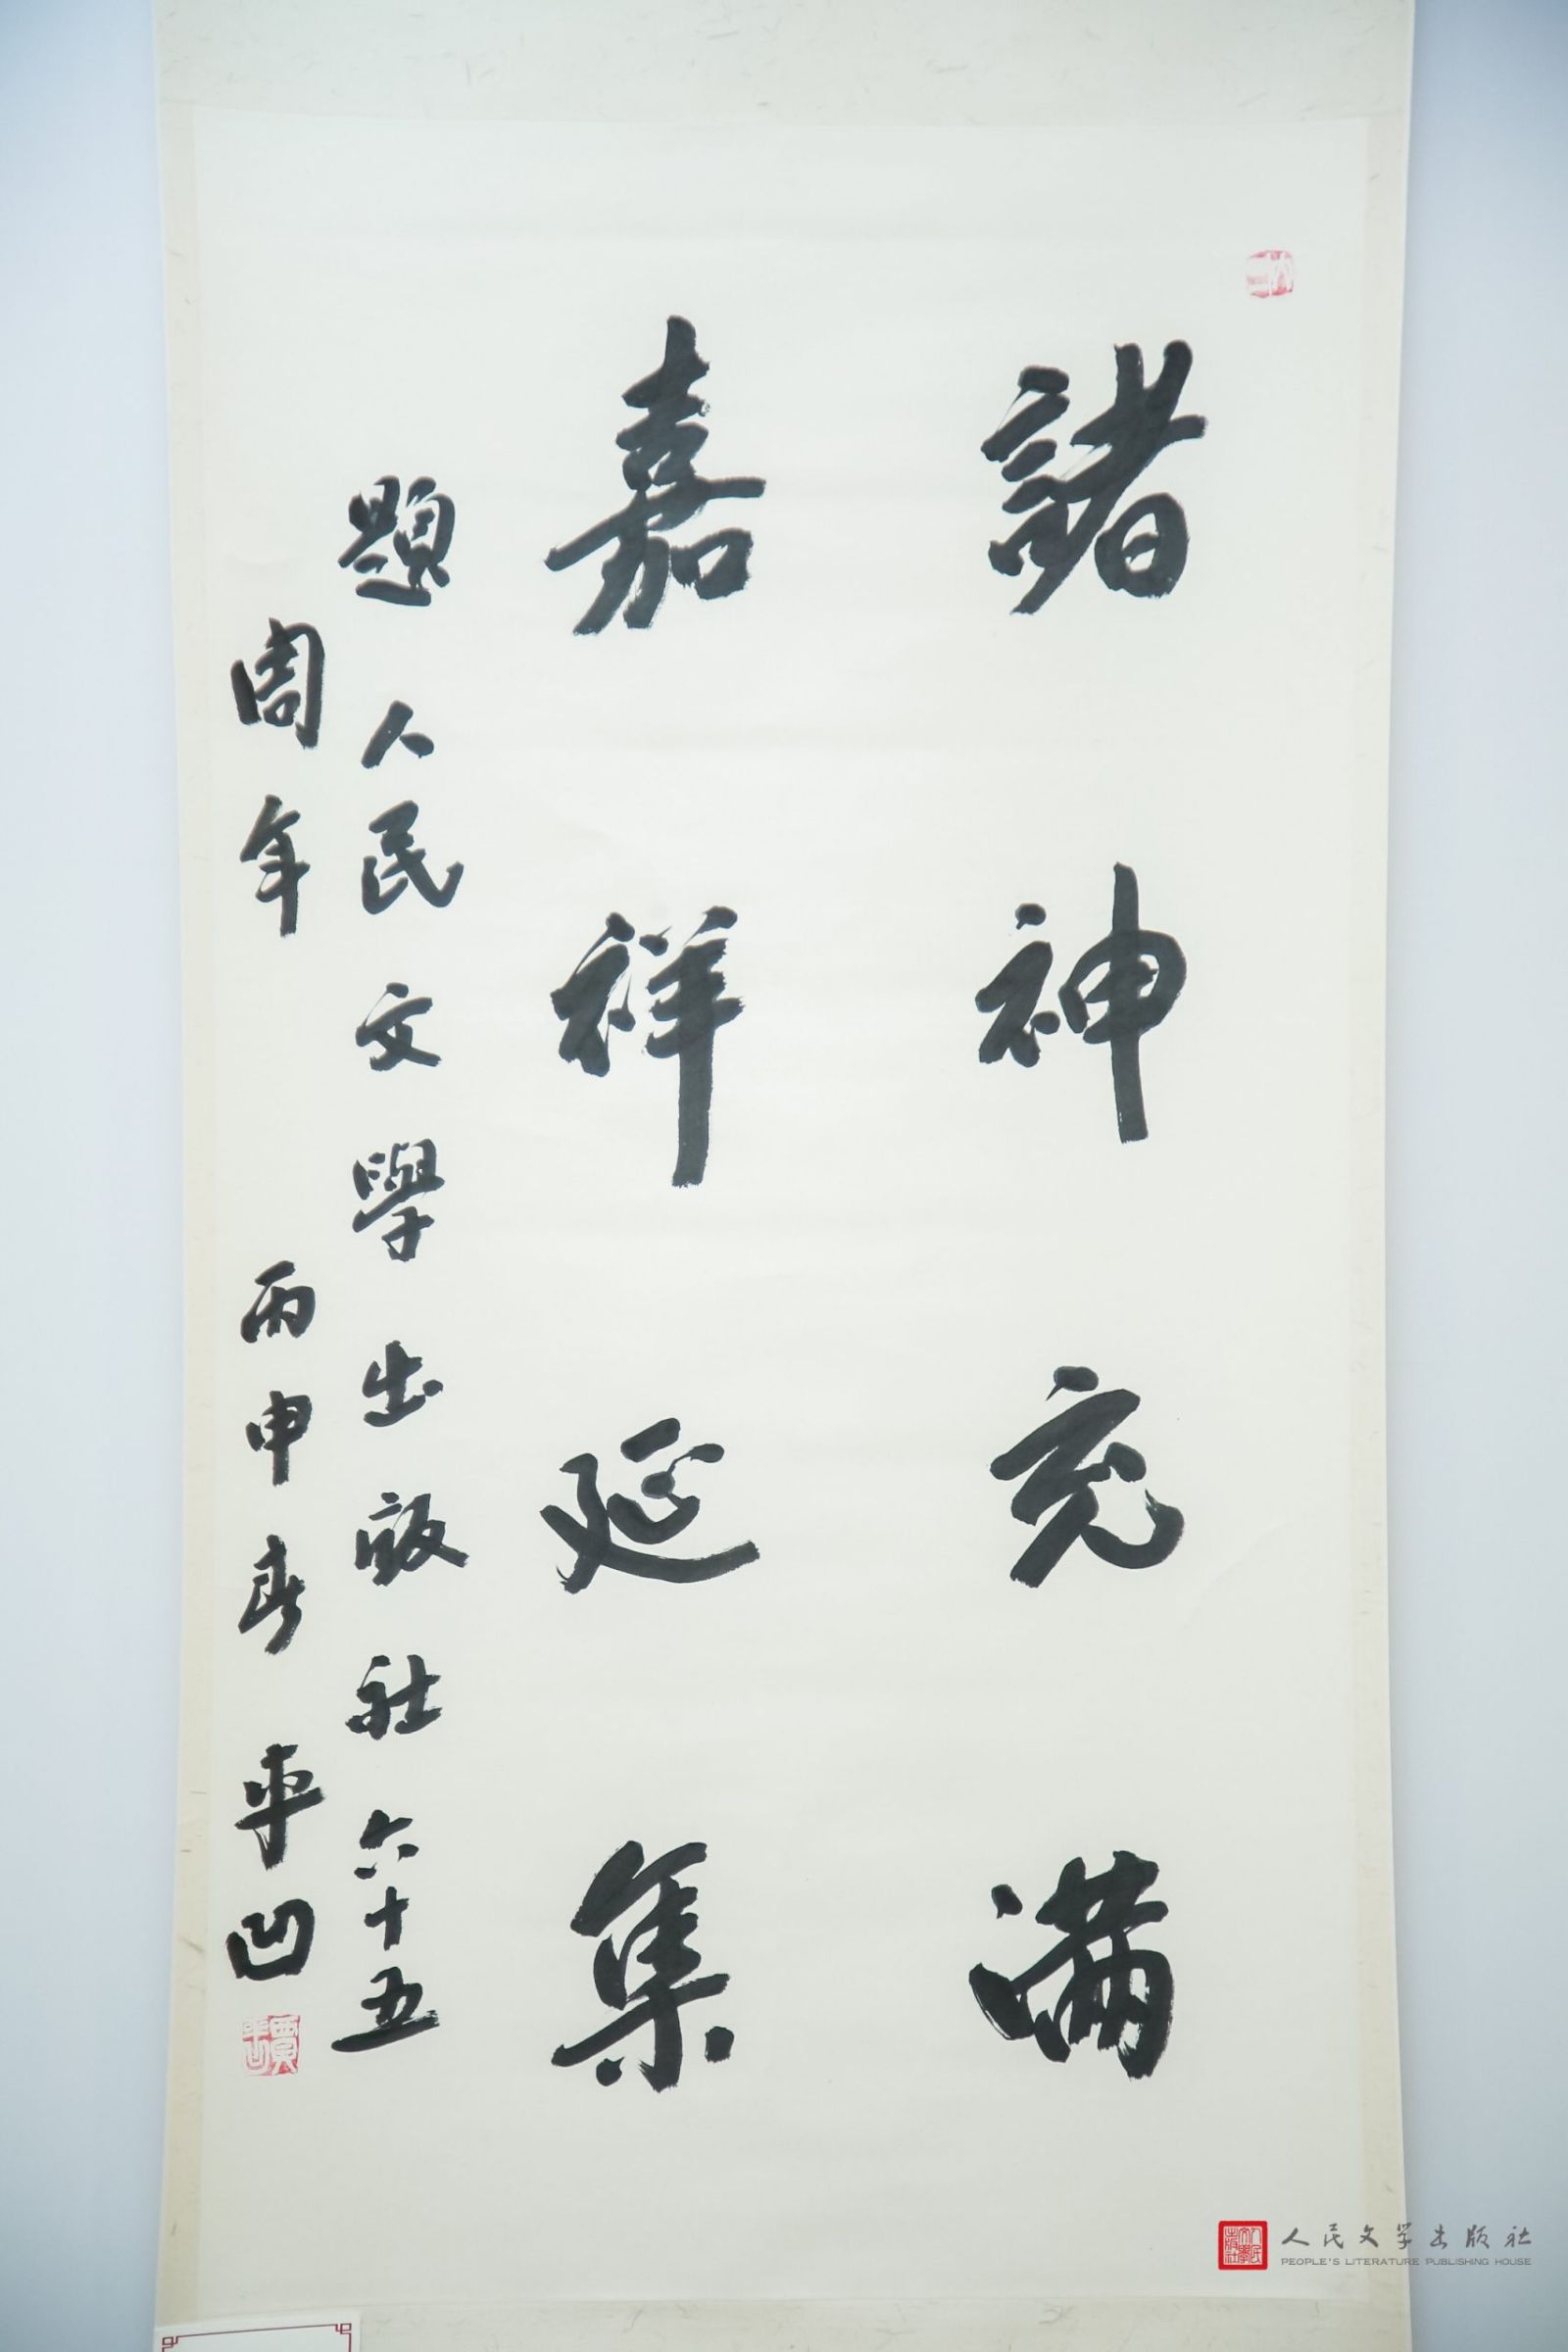 諸神充满
嘉祥延集
題人民文學出版社六十五
周年 丙申春 平凹
人民文学出版社
PEOPLE'S LITERATURE PUBLISHING HOUSE